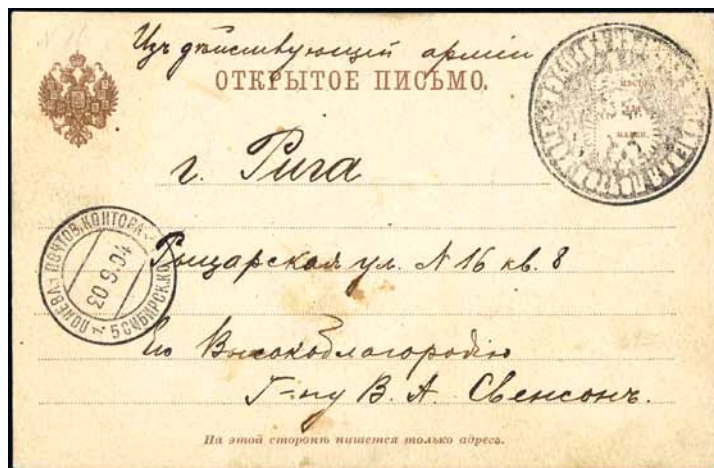 Изъ дѣйствующей арміи
ОТКРЫТОЕ ПИСЬМО.
МѢСТО
ДЛЯ
МАРКИ.
г. Рига
ПОЛЕВАЯ ПОЧТОВ. КОНТОРА
30 9 04
5 СИБИРСК. КО
Рыцарская ул. N 16 кв. 8
Его Высокоблагородію
Г-ну В. А. Свенсонъ.
На этой сторонѣ пишется только адресъ.